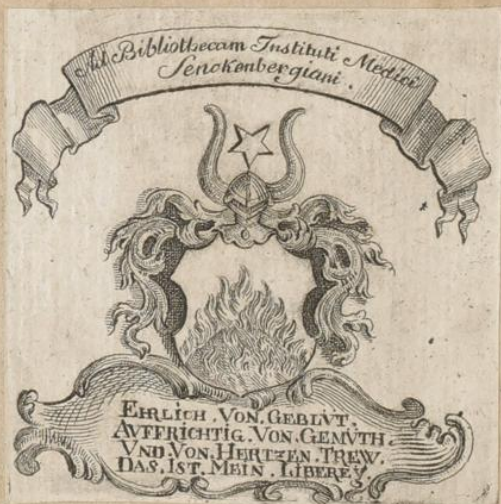 Ad Bibliothecam Instituti Medici
Senckenbergiani.
EHRLICH. VON. GEBLVT.
AVFFRICHTIG. VON. GEMÜTH.
VND. VON. HERTZEN. TREW.
DAS. IST. MEIN. LIBEREY